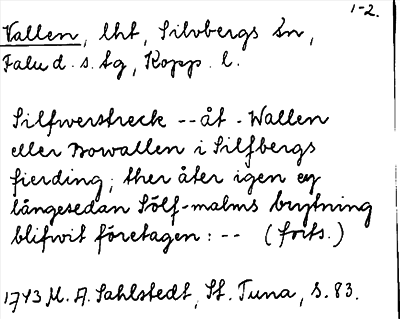 1-2.
Vallen, lht, Silvbergs sn,
Falu d. s. tg, Kopp. l.
Silfwerstreck -- åt. Wallen
eller Bowallen i Silfbergs
fierding, ther åter igen ey
långesedan Sölf-malms brytning
blifwit företagen: -- (forts.)
1743 M. A. Sahlstedt, St. Tuna, s. 83.